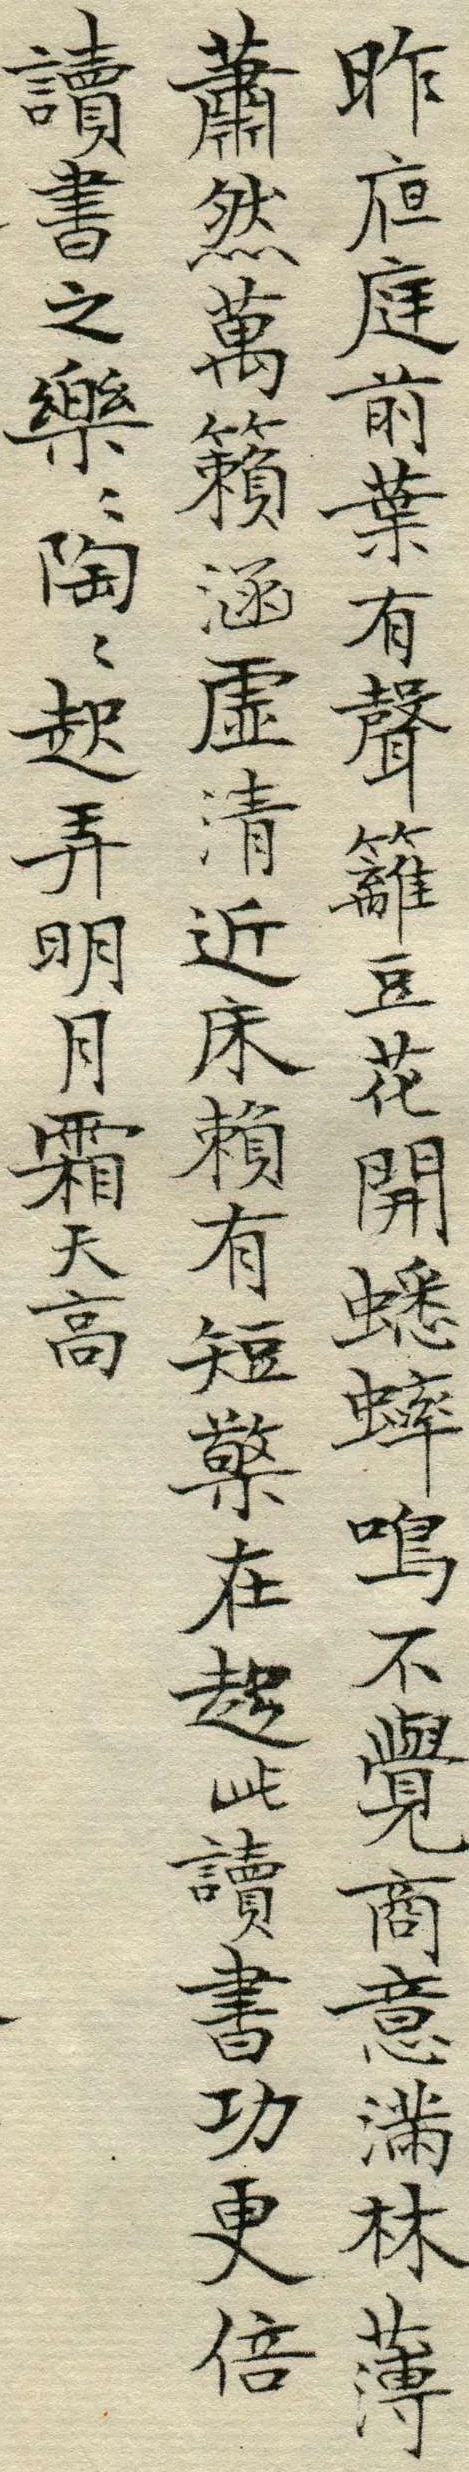 昨庭前葉有聲籬豆花開蟋蟀鳴不覺商意滿林薄
蕭然萬籟涵虛清近床賴有短檠在起此讀書功更倍
讀書之樂〻陶〻起弄明月霜天高